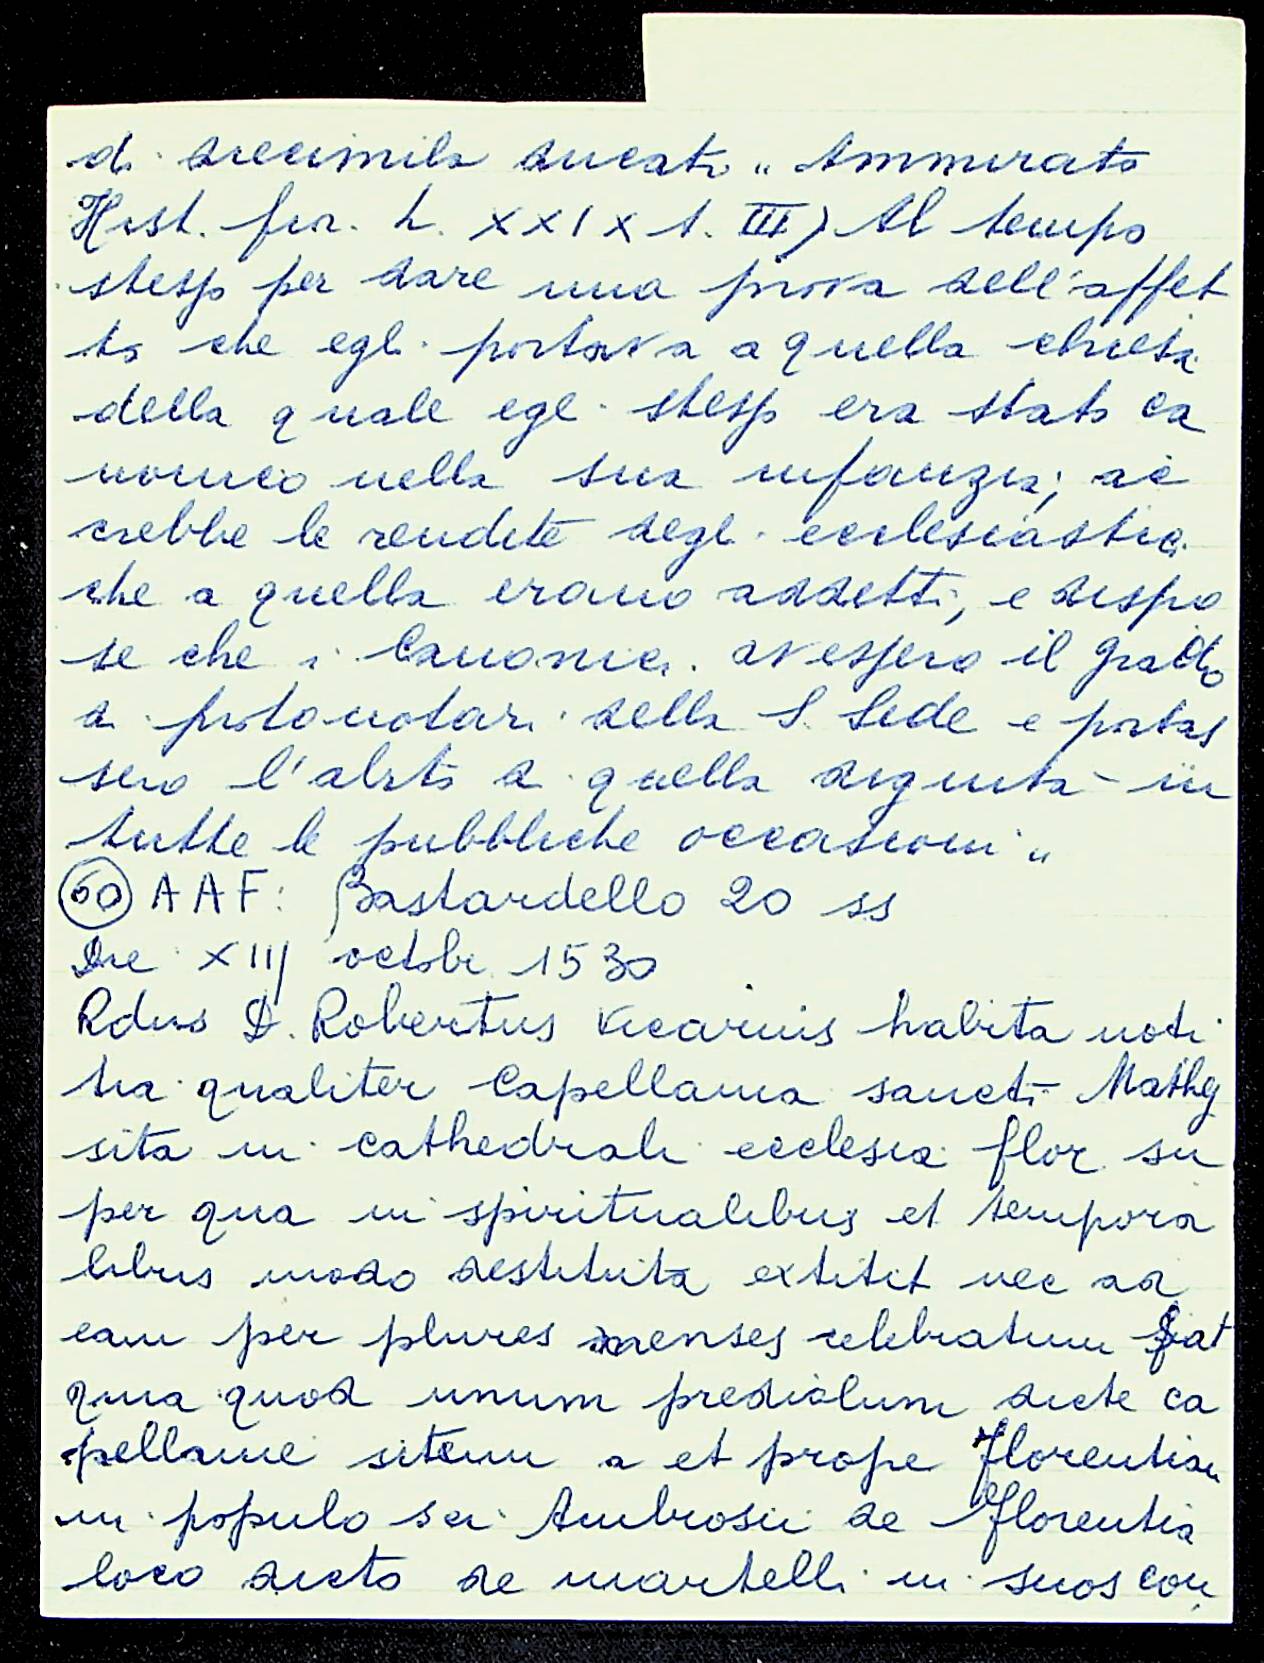 di diecimila ducati „ Ammirato
Hist. fior. L. XXIX t. III) Al tempo
stesso per dare una prova dell'affet
to che egli portava a quella chiesa
della quale egli stesso era stato ca
nonico nella sua infanzia; ac
crebbe le rendite degli ecclesiastici
che a quella erano addetti, e dispo
se che i Canonici avessero il grado
di protonotari della S. Sede e portas
sero l'abito di quella dignità in
tutte le pubbliche occasioni „
60 AAF: Bastardello 20 ss
Die XIIJ octobr 1530
Rdus D. Robertus Vicarius habita noti
tia qualiter Capellania sancti Mathej
sita in cathedrali ecclesia flor su
per qua in spiritualibus et tempora
libus modo destituta extitit nec ad
eam per plures menses celebratum fiat
quia quod unum prediolum dicte ca
pellanie situm a et prope Florentiam
in populo sci Ambrosii de Florentia
loco dicto de martelli in suos con